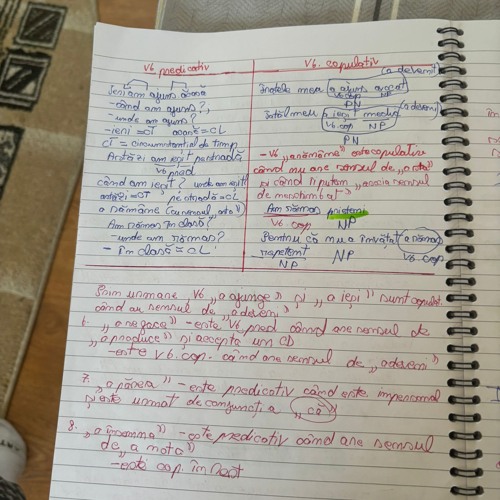 Vb predicativ
Vb. copulativ
Ieri am ajuns acasă
- când am ajuns?
- unde am ajuns?
- ieri = CT acasă = CL
CT = circumstanțial de timp
Astăzi am ieșit pe stradă
vb. pred
când am ieșit? unde am ieșit
astăzi = CT pe stradă = CL
a rămâne (cu sensul „a sta”)
Am rămas în clasă?
- unde am rămas?
- în clasă = CL
(a devenit)
fratele meu a ajuns avocat
vb. cop NP
PN
Tatăl meu a ieșit medic (a devenit
vb. cop NP
PN
- Vb „a rămâne” este copulativ
când nu are sensul de „a sta”
și când îi putem
Am rămas prieteni
Vb. cop NP
Pentru că nu a învățat a rămas
repetent NP Vb. cop
NP
Prin urmare, Vb „a ajunge” și „a ieși” sunt copulat.
când au sensul de „a deveni”
6. - este vb. pred când are sensul de
„a produce” și acceptă un CD
- este vb. cop. când are sensul de „a deveni”
7. „a părea” - este predicativ când este impersonal
și este urmat de conjuncția „că”
8. „a însemna” - este predicativ când are sensul
de „a nota”
- este cop. în rest